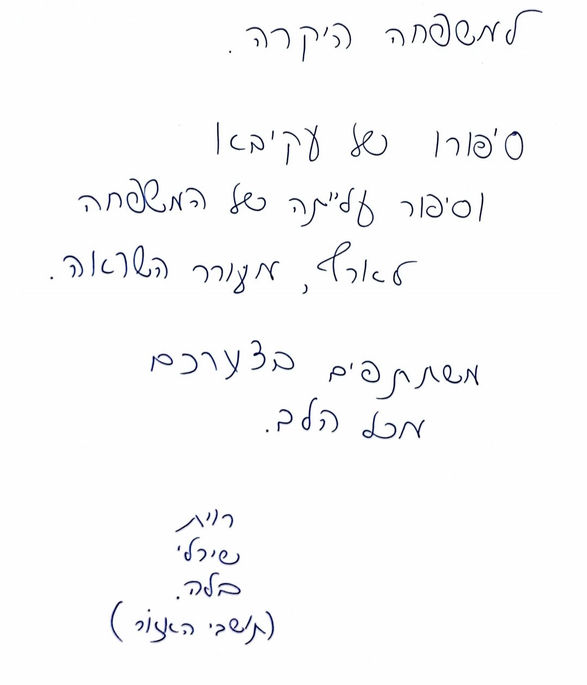 למשפחה היקרה.
סיפורו של עקיבא
וסיפור עלייתה של המשפחה
לארץ, מעורר השראה.
משתתפים בצערכם
מכל הלב.
רוית
שירלי
בלה.
(תושבי האזור)